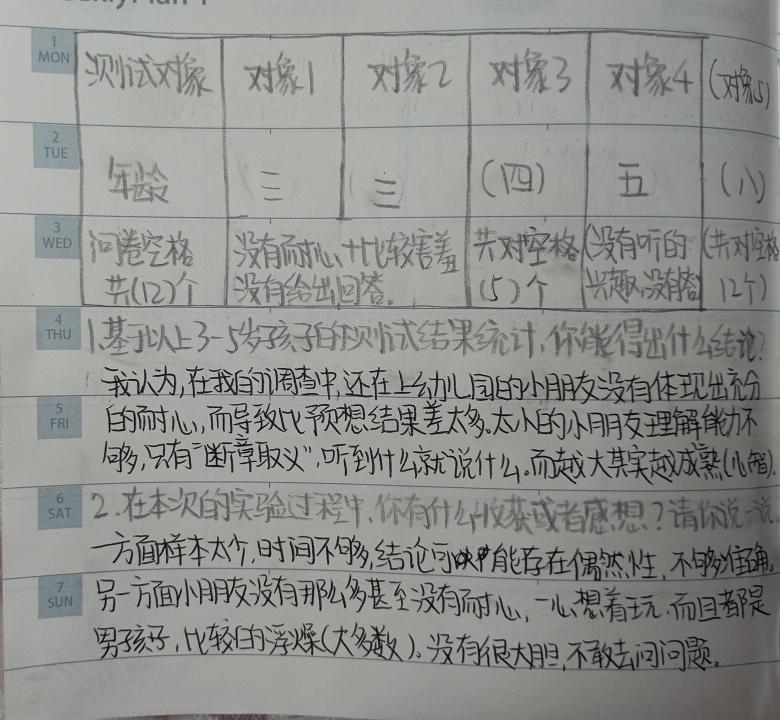 1 MON
测试对象 对象1 对象2 对象3 对象4 (对象5)
2 TUE
年龄 三 三 (四) 五 (八)
3 WED
问卷空格 没有耐心,十比较害羞 共对空格 (没有听的 (共对空格
共(12)个 没有给出回答. (5)个 兴趣,没有答 12个)
4 THU
1.基于以上3-5岁孩子的测试结果统计,你能得出什么结论?
我认为,在我的调查中,还在上幼儿园的小朋友没有体现出充分
5 FRI
的耐心,而导致比预想结果差太多.太小的小朋友理解能力不
够多,只有“断章取义”,听到什么就说什么.而越大其实越成熟(心智).
6 SAT
2.在本次的实验过程中,你有什么收获或者感想?请你说一说.
一方面样本太个,时间不够,结论可能存在偶然性,不够准确.
7 SUN
另一方面小朋友没有那么多甚至没有耐心,一心想着玩.而且都是
男孩子,比较的浮燥(大多数).没有很大胆,不敢去问问题.